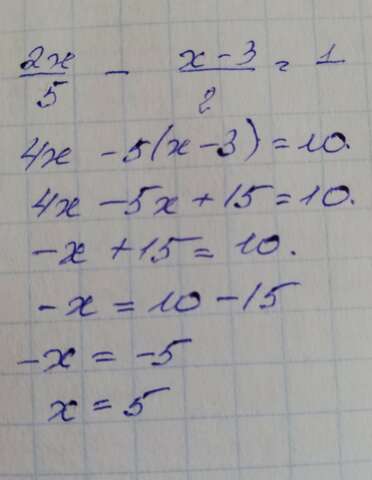 2x/5 - x-3/2 = 1
4x -5(x-3)=10.
4x-5x+15=10.
-x +15= 10.
-x = 10-15
-x = -5
x = 5